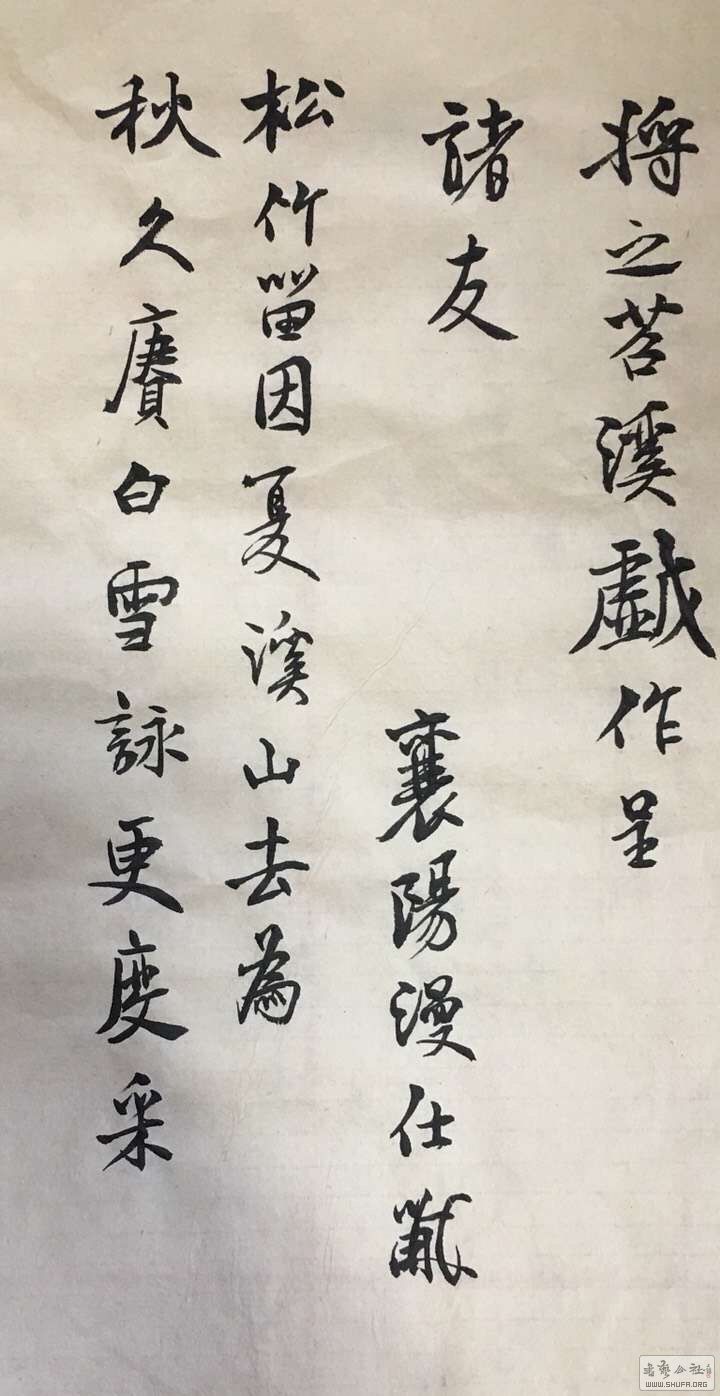 將之苕溪戲作呈
諸友
襄陽漫仕黻
松竹留因夏溪山去為
秋久賡白雪詠更度采
WWW.SHUFA.ORG